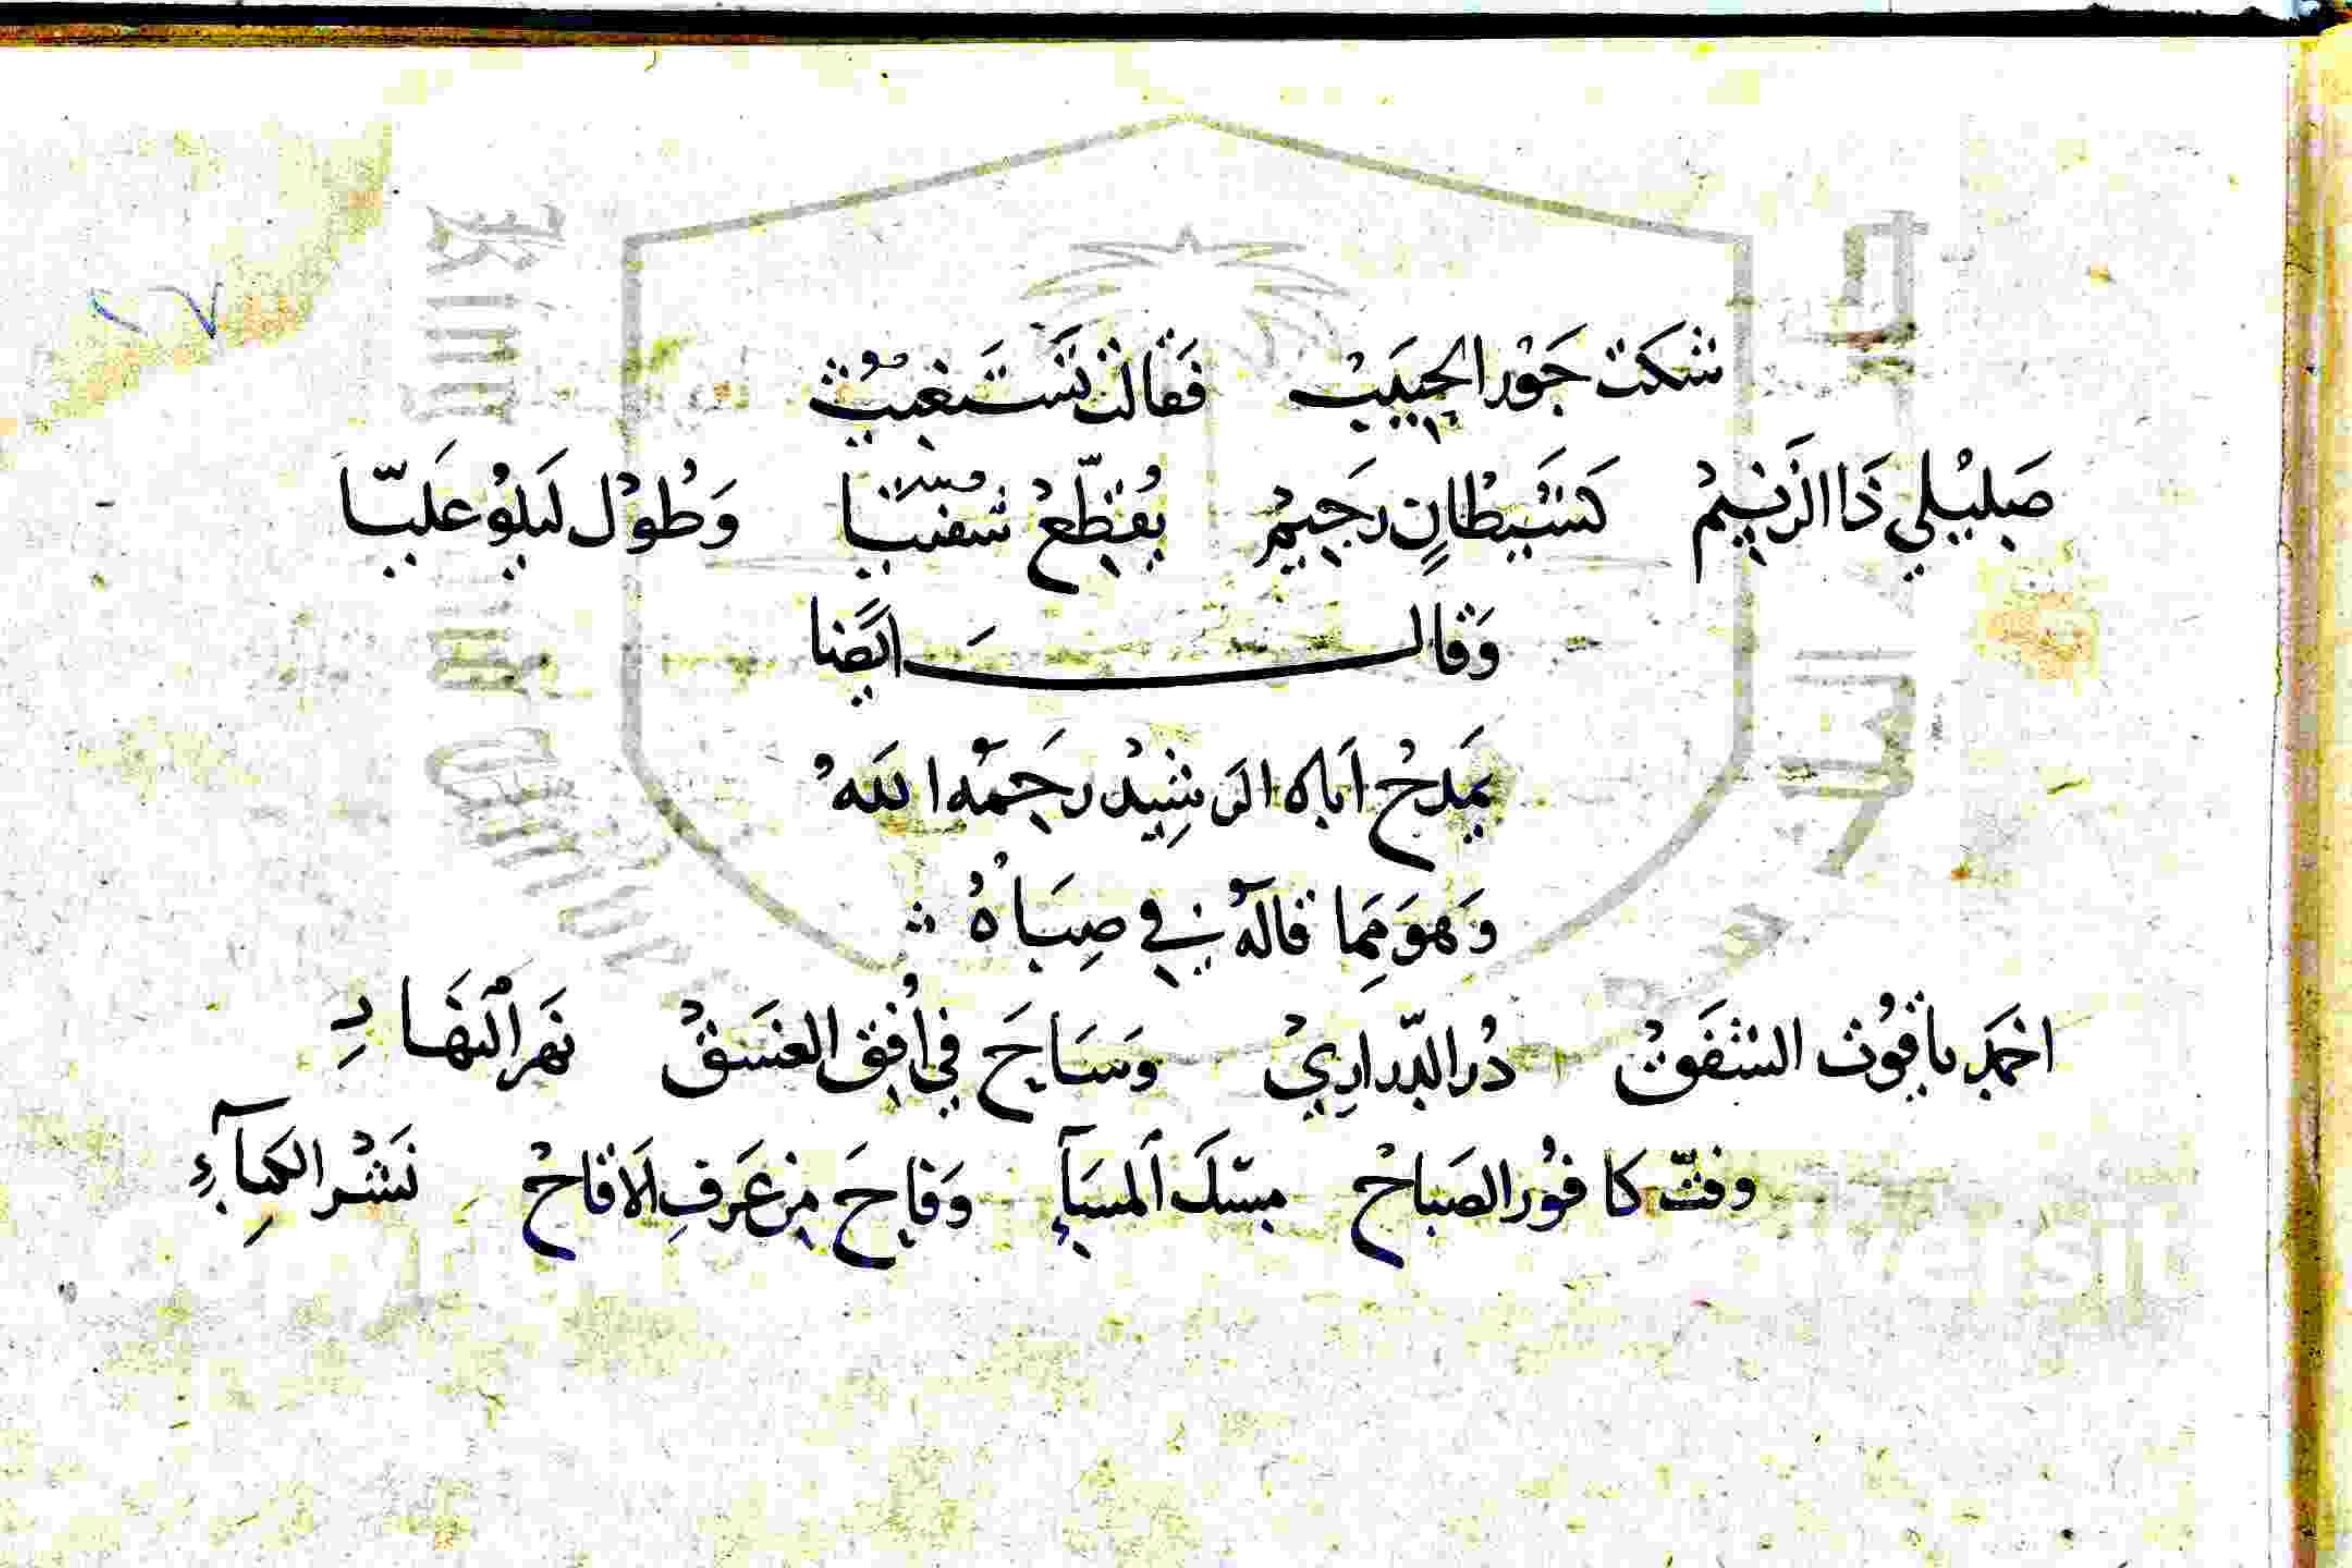 شَكَتْ جَوْرَ الحَبِيَبْ فَقَالَتْ تَسْتَغِيْثُ
كَشَيْطَانٍ رَجِيمْ يُقَطِّعْ وَطُوْل عَلَيَّا
وَقَالَ ايَضا
يَمدَحُ اَباه الرشِيْد رحَمهُ اللَهُ
وَهوَ مِمَا قالهُ فِي صِبَاهُ
اخمَد ياقوُت الشَفَقْ دُر الدّرارِيْ وَسَاحَ في اُفِق الغَسَقْ نَهر النَهَارِ
وفتّ كافوُر الصَباحْ مِسْكَ المسَآءِ وَفاحَ مِن عَرفِ الاَقاحْ نَشْر الكِمَآءِ